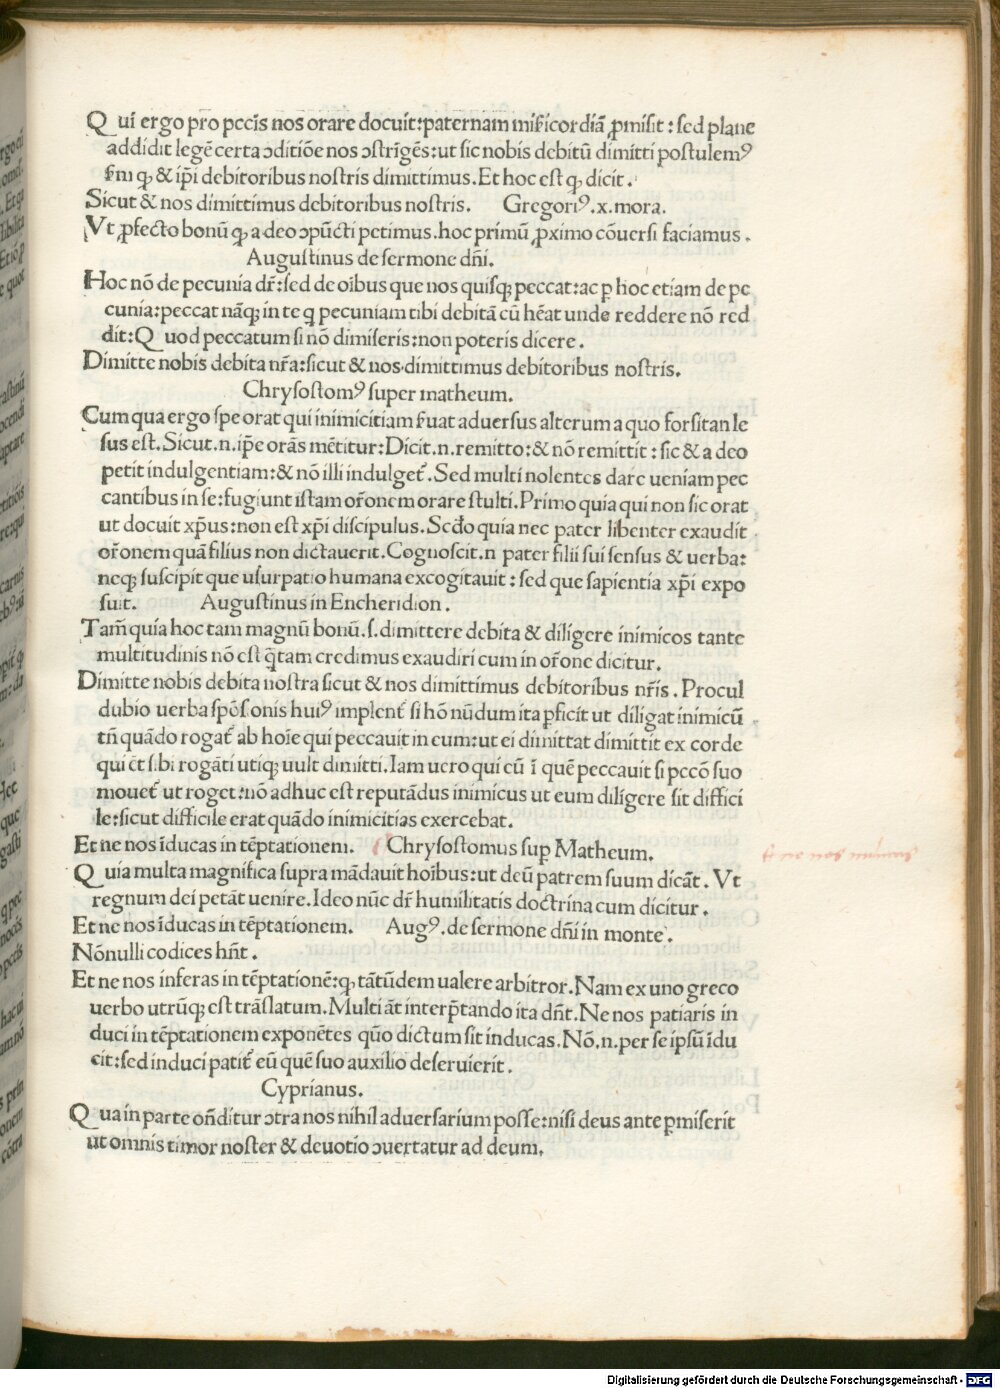 Qui ergo pro pcc̄is nos orare docuit:paternam miſ̄icordiā ꝓmiſit : ſed plane
addidit legē certa ↄditiōe nos ↄſtrīgēs:ut ſic nobis debitū dimitti poſtulemꝰ
ſm̄ ꝙ & ip̄i debitoribus noſtris dimittimus.Et hoc eſt ꝙ dicit.
Sicut & nos dimittimus debitoribus noſtris. Gregoriꝰ.x.mora.
Vt ꝓfecto bonū ꝙ a deo ↄpūcti petimus.hoc primū ꝓximo cōuerſi faciamus.
Auguſtinus de ſermone dn̄i.
Hoc nō de pecunia dr̄:ſed de oībus que nos quiſꝙ peccat:ac ꝑ hoc etiam de pe
cunia:peccat nāꝙ in te q pecuniam tibi debitā cū hēat unde reddere nō red
dit:Quod peccatum ſi nō dimiſeris:non poteris dicere.
Dimitte nobis debita nr̄a:ſicut & nos dimittimus debitoribus noſtris.
Chryſoſtomꝰ ſuper matheum.
Cum qua ergo ſpe orat qui inimicitiam ſ̄uat aduerſus alterum a quo forſitan le
ſus eſt.Sicut.n.ip̄e orās mētitur:Dicit.n.remitto:& nō remittit : ſic & a deo
petit indulgentiam:& nō illi indulget̄. Sed multi nolentes dare ueniam pec
cantibus in ſe:fugiunt iſtam or̄onem orare ſtulti.Primo quia qui non ſic orat
ut docuit xp̄us:non eſt xp̄i diſcipulus.Sc̄do quia nec pater libenter exaudit
or̄onem quā filius non dictauerit.Cognoſcit.n pater filii ſui ſenſus & uerba:
neꝙ ſuſcipit que uſurpatio humana excogitauit : ſed que ſapientia xp̄i expo
ſuit. Auguſtinus in Encheridion.
Tam̄ quia hoc tam magnū bonū.ſ.dimittere debita & diligere inimicos tante
multitudinis nō eſt q̄tam credimus exaudiri cum in or̄one dicitur.
Dimitte nobis debita noſtra ſicut & nos dimittimus debitoribus nr̄is.Procul
dubio uerba ſpōſonis huiꝰ implent̄ ſi hō nūdum ita ꝑficit ut diligat inimicū
tn̄ quādo rogat̄ ab hoīe qui peccauit in eum:ut ei dimittat dimittit ex corde
qui et̄ ſibi rogāti utiꝙ uult dimitti.Iam uero qui eū ī quē peccauit ſi pccō ſuo
mouet̄ ut roget:nō adhuc eſt reputādus inimicus ut eum diligere ſit diffici
le:ſicut difficile erat quādo inimicitias exercebat.
Et ne nos īducas in tēptationem. Chryſoſtomus ſuꝑ Matheum.
Et ne nos inducas
Quia multa magnifica ſupra mādauit hoībus:ut deū patrem ſuum dicāt. Vt
regnum dei petāt uenire.Ideo nūc dr̄ humilitatis doctrina cum dicitur.
Et ne nos īducas in tēptationem. Augꝰ.de ſermone dn̄i in monte.
Nōnulli codices hn̄t.
Et ne nos inferas in tēptationē:ꝙ tātūdem ualere arbitror.Nam ex uno greco
uerbo utrūꝙ eſt trāſlatum.Multi āt interp̄tando ita dn̄t.Ne nos patiaris in
duci in tēptationem exponētes quō dictum ſit inducas.Nō.n.per ſe ipſū īdu
cit:ſed induci patit̄ eū quē ſuo auxilio deſeruierit.
Cyprianus.
Qua in parte on̄ditur ↄtra nos nihil aduerſarium poſſe:niſi deus ante ꝑmiſerit
ut omnis timor noſter & deuotio ↄuertatur ad deum.
Digitalisierung gefördert durch die Deutsche Forschungsgemeinschaft - DFG